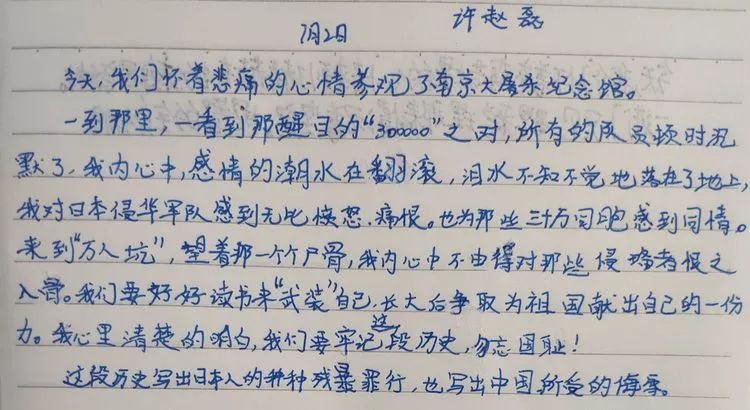 许赵磊
7月2日
今天,我们怀着悲痛的心情参观了南京大屠杀纪念馆。
一到那里,一看到那醒目的“300000”之时,所有的队员顿时沉
默了,我内心中,感情的潮水在翻滚,泪水不知不觉地落在了地上,
我对日本侵华军队感到无比愤怒、痛恨。也为那些三十万同胞感到同情。
来到“万人坑”,望着那一个个尸骨,我内心中不由得对那些侵略者恨之
入骨。我们要好好读书来“武装”自己,长大后争取为祖国献出自己的一份
力。我心里清楚的明白,我们要牢记这段历史,勿忘国耻!
这段历史写出日本人的种种残暴罪行,也写出中国所受的侮辱。